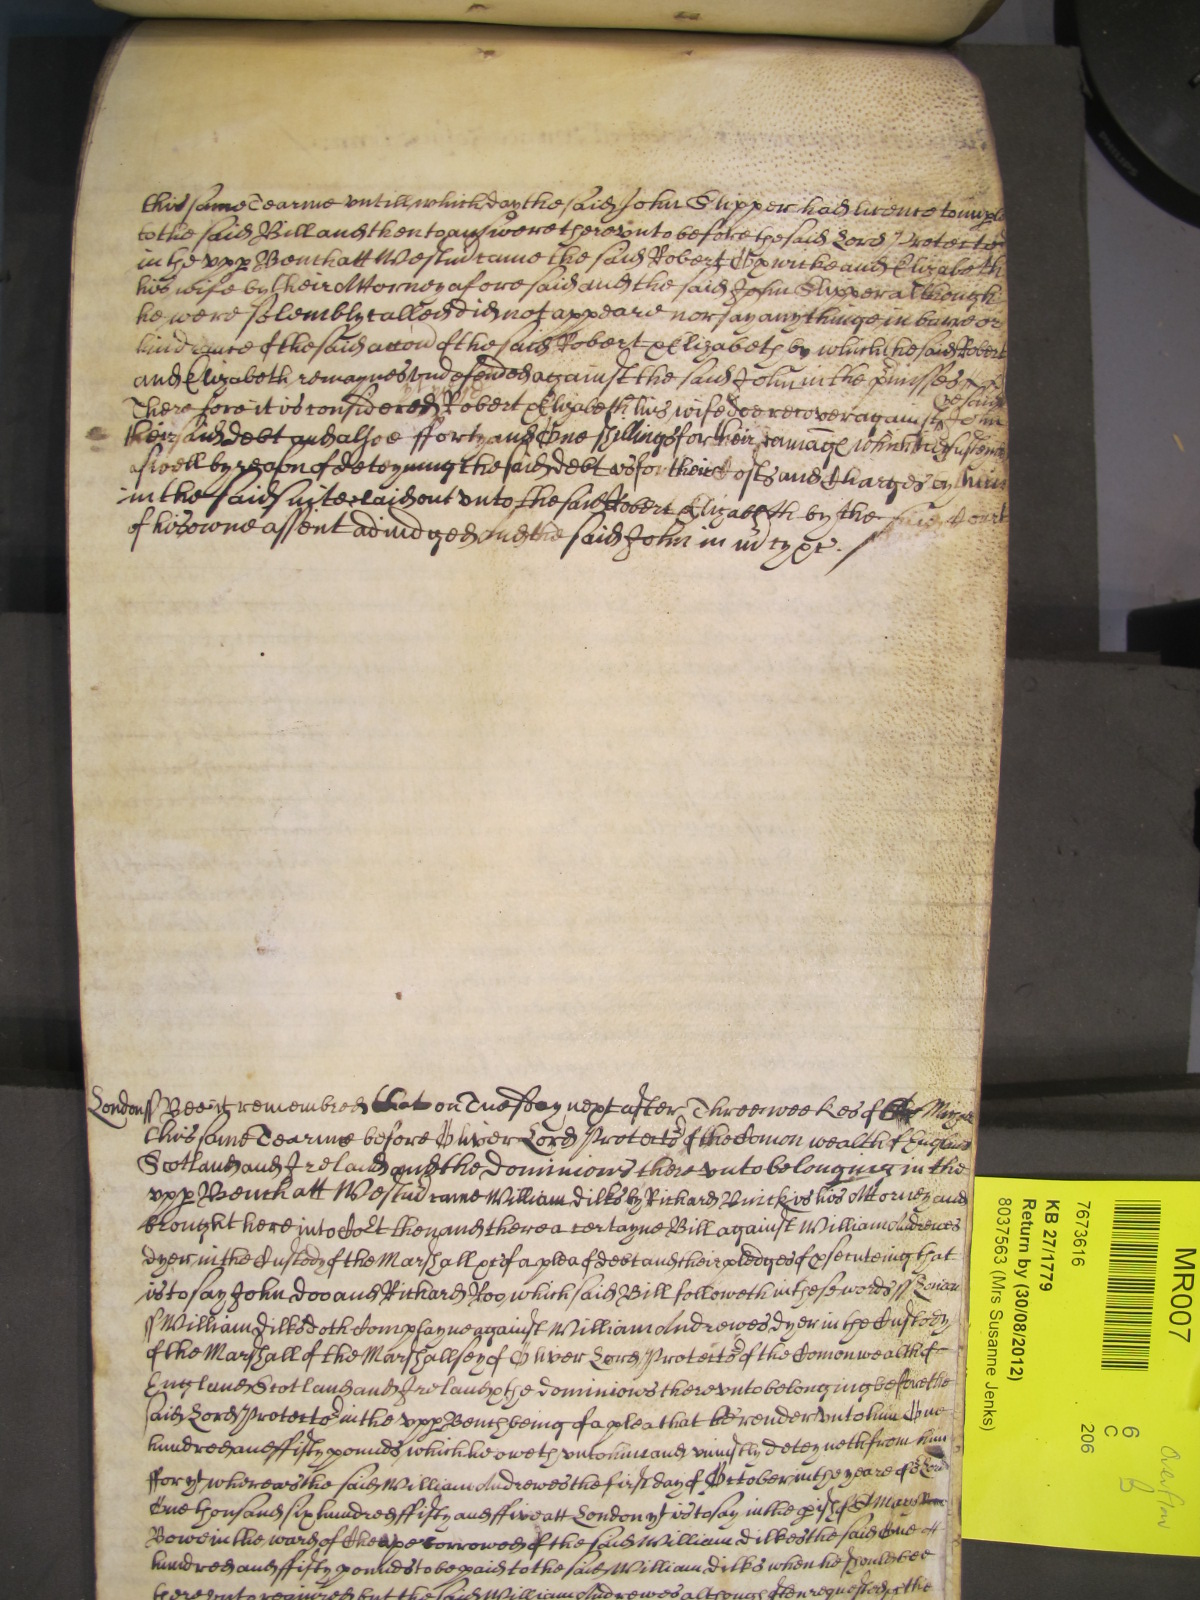 this same Tearme untill which day the said John Slipper had licence to imple
to the said Bill and then to answere thereunto before the said Lord Protector
in the upp Bench att Westm came the said Robert and Elizabeth
his wife by their Attorney aforesaid and the said John Slipper although
he were solembly called did not appeare nor say any thinge in barre or
hindrance of the said accon of the said Robert & Elizabeth by which the said Robert
and Elizabeth remaynes undefended against the said John in the pmisses
Therefore it is considered Robert & Elizabeth his wife doe recover against John
their said debt and alsoe fforty and One shillings for their damage which
aswell by reason of deteyning the said debt as for their Costs and Charges by
in the said suite laid out unto the said Robert & Elizabeth by the Court
of his owne assent adiudged And the said John in m &c
London ss Bee it remembred that on Tuesday next after Three weekes of St Mich
this same Tearme before Oliver Lord Protector of the Comonwealth of England
Scotland and Ireland and the dominions thereunto belonging in the
upp Bench att Westm came William Dilks by Richard his Attorney and
brought here into Court then and there a certayne Bill against William Andrewes
dyer in the Custody of the Marshall &c of a plea of debt and their pledges of psecuteing that
is to say John Doo and Richard Roo which said Bill followeth in these words ss London
ss William Dilks doth Complayne against William Andrewes dyer in the Custody
of the Marshall of the Marshallsey of Oliver Lord Protector of the Comonwealth of
England Scotland and Ireland & the dominions thereunto belonging before the
said Lord Protector in the upp Bench being of a plea that he render unto him One
hundred and ffifty pounds which he oweth unto him and uniustly deteyneth from him
ffor yt whereas the said William Andrewes the first day of October in the yeare of our Lord
One thousand six hundred ffifty and ffive att London yt is to say in the pish of St Mary
Bowe in the ward of Cheape borrowed of the said William Dilkes the said One
hundred and ffifty pounds to be paid to the said William Dilks when he should bee
thereunto required but the said William Andrewes although often requested &c the
MR007
7673616
KB 27/1779
Return by (30/08/2012)
8037563 (Mrs Susanne Jenks)
6
C
206
PHILIPS